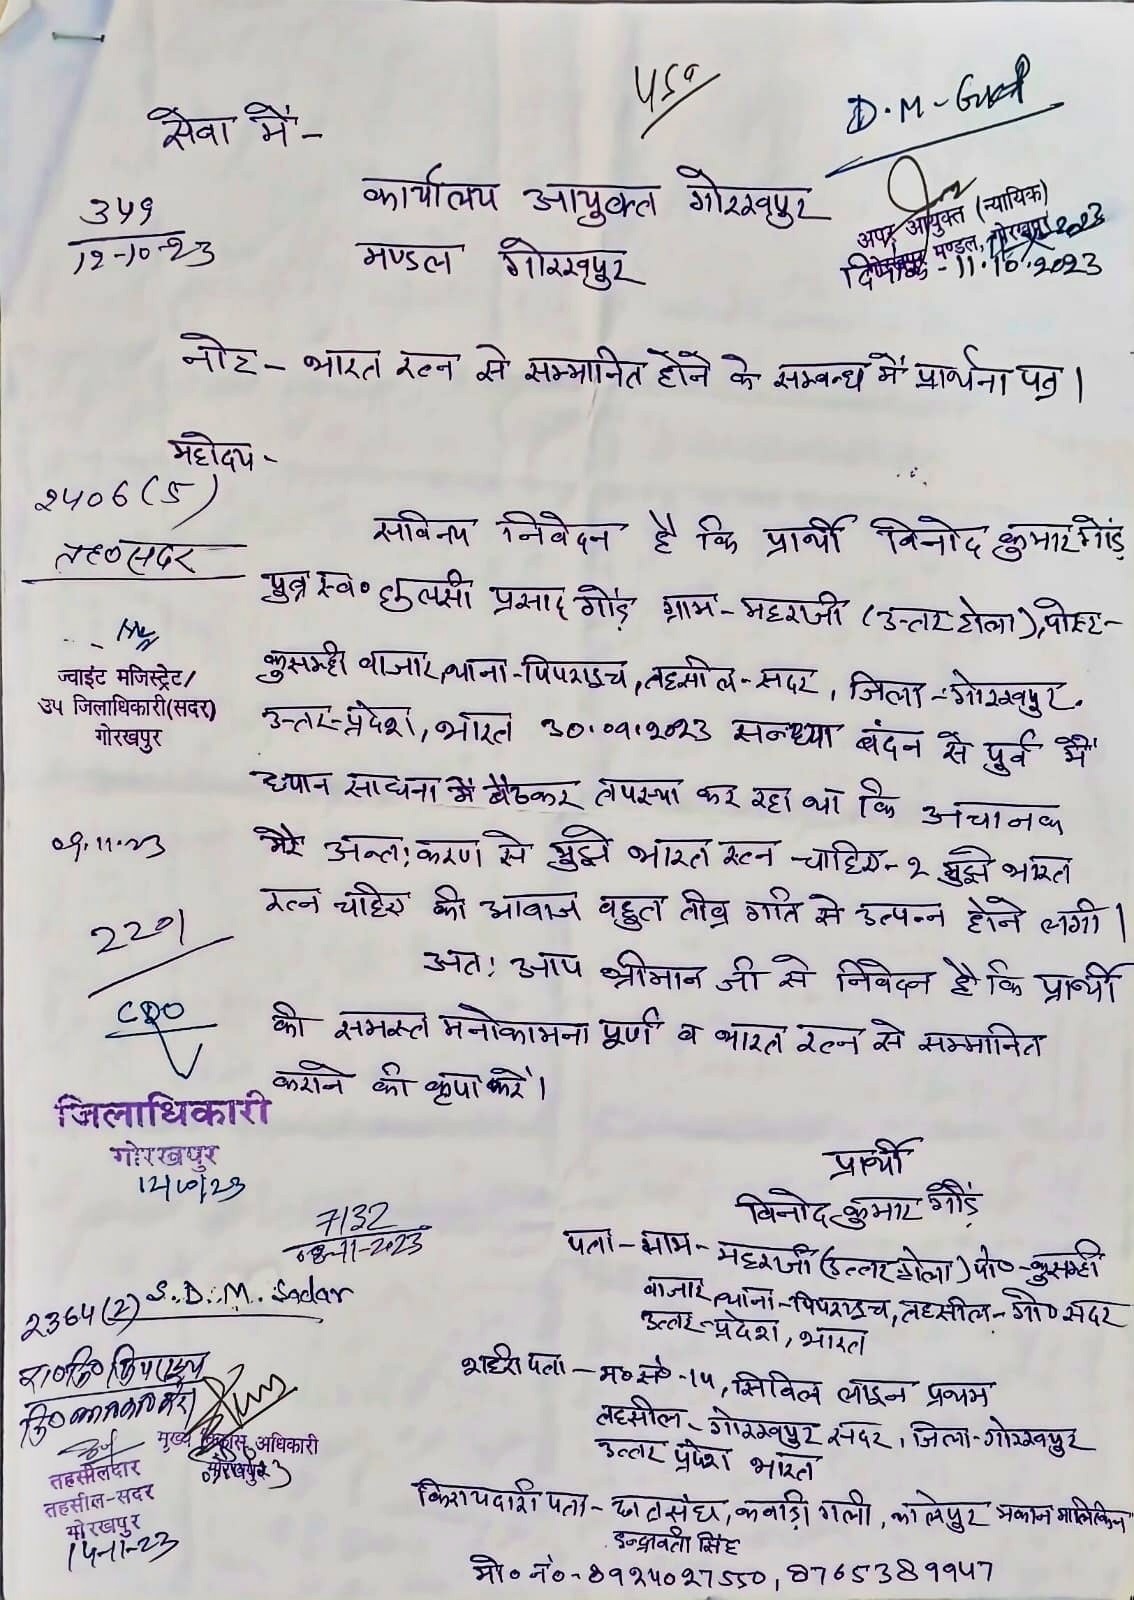 सेवा में-
कार्यालय आयुक्त गोरखपुर
मण्डल गोरखपुर
D.M-
अपर आयुक्त (न्यायिक)
मण्डल, गोरखपुर
दिनांक-11.10.2023
12-10-23
नोट- भारत रत्न से सम्मानित होने के सम्बन्ध में प्रार्थना पत्र।
महोदय-
2406(5)
तह०सदर
सविनय निवेदन है कि प्रार्थी विनोद कुमार गौंड़
पुत्र स्व० तुलसी प्रसाद गौंड़ ग्राम-महराजी (उत्तर टोला), पोस्ट-
कुसम्ही बाजार, थाना-पिपराइच, तहसील-सदर, जिला-गोरखपुर.
उत्तर-प्रदेश, भारत 30.09.2023 सन्ध्या बंदन से पुर्व में
ध्यान साधना में बैठकर तपस्या कर रहा था कि अचानक
मेरे अन्त:करण से मुझे भारत रत्न चाहिए-२ मुझे भारत
रत्न चाहिए की आवाज बहुत तीव्र गति से उत्पन्न होने लगी।
अत: आप श्रीमान जी से निवेदन है कि प्रार्थी
की समस्त मनोकामना पूर्ण व भारत रत्न से सम्मानित
कराने की कृपा करें।
ज्वाइंट मजिस्ट्रेट/
उप जिलाधिकारी(सदर)
गोरखपुर
09.11.23
2201
CDO
जिलाधिकारी
गोरखपुर
12/10/23
प्रार्थी
विनोद कुमार गौंड़
पता-ग्राम-महराजी (उत्तर टोला) पो०-कुसम्ही
बाजार, थाना-पिपराइच, तहसील-गो० सदर
उत्तर-प्रदेश, भारत
शहरी पता-म० सं०-14, सिविल लाइन प्रथम
तहसील-गोरखपुर सदर, जिला-गोरखपुर
उत्तर प्रदेश भारत
किरायदारी पता- छात्रसंघ, कबाड़ी गली, कालेपुर मकान मालिकिन
इन्द्रावती सिंह
मो० नं०-8924027550, 8765389947
7132
08-11-2023
S.D.M. Sadar
2364(2)
मुख्य विकास अधिकारी
गोरखपुर
तहसीलदार
तहसील-सदर
गोरखपुर
14-11-23